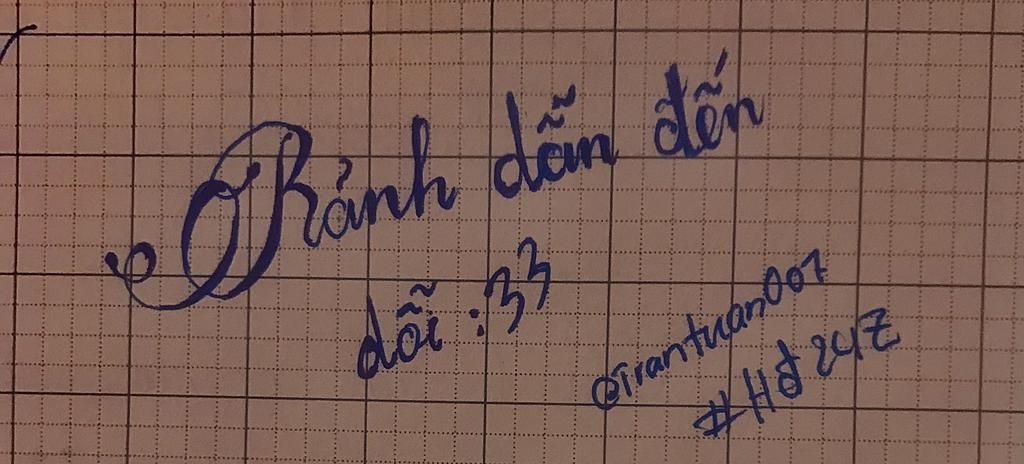 Rảnh dẫn đến
dỗi :33
@trantuan007
#Hđ247